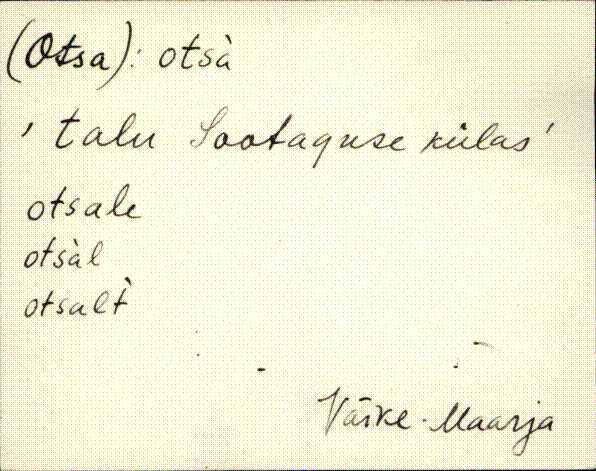 (Otsa): otsà
' talu Sootaguse külas'
otsale
otsàl
otsalt̀
Väike-Maarja